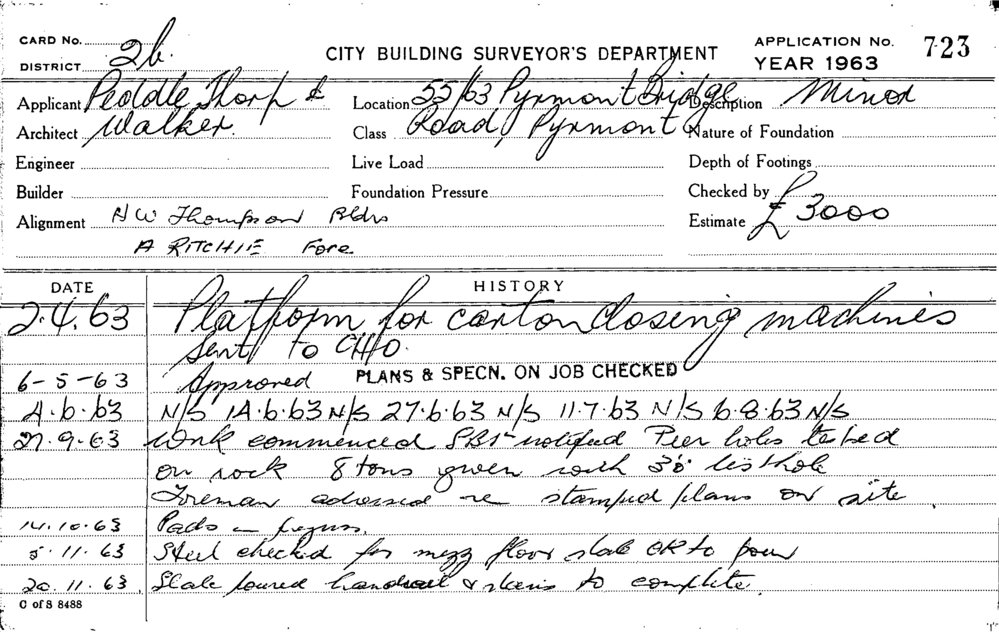 CARD No.
DISTRICT 2b.
CITY BUILDING SURVEYOR'S DEPARTMENT
APPLICATION No. 723
YEAR 1963
Applicant Peddle Thorp &
Architect Walker.
Engineer
Builder
Alignment N W Thompson Bldrs
A RITCHIE Fore
Location 55/63 Pyrmont Bridge
Class Road, Pyrmont
Live Load
Foundation Pressure
Description Minor
Nature of Foundation
Depth of Footings
Checked by
Estimate £3000
DATE HISTORY
2.4.63 Platform for carton closing machines
Sent to CHO.
6-5-63 Approved PLANS & SPECN. ON JOB CHECKED
4.6.63 N/S 14.6.63 N/S 27.6.63 N/S 11.7.63 N/S 6.8.63 N/S
27.9.63 Work commenced notified Pier holes tested
on rock 8 tons given with 3'0" testhole
Foreman advised re stamped plans on site
14.10.63 Pads in
5.11.63 Steel checked for mezz floor slab OK to pour
20.11.63. Slab poured handrail & stairs to complete.
C of S 8488